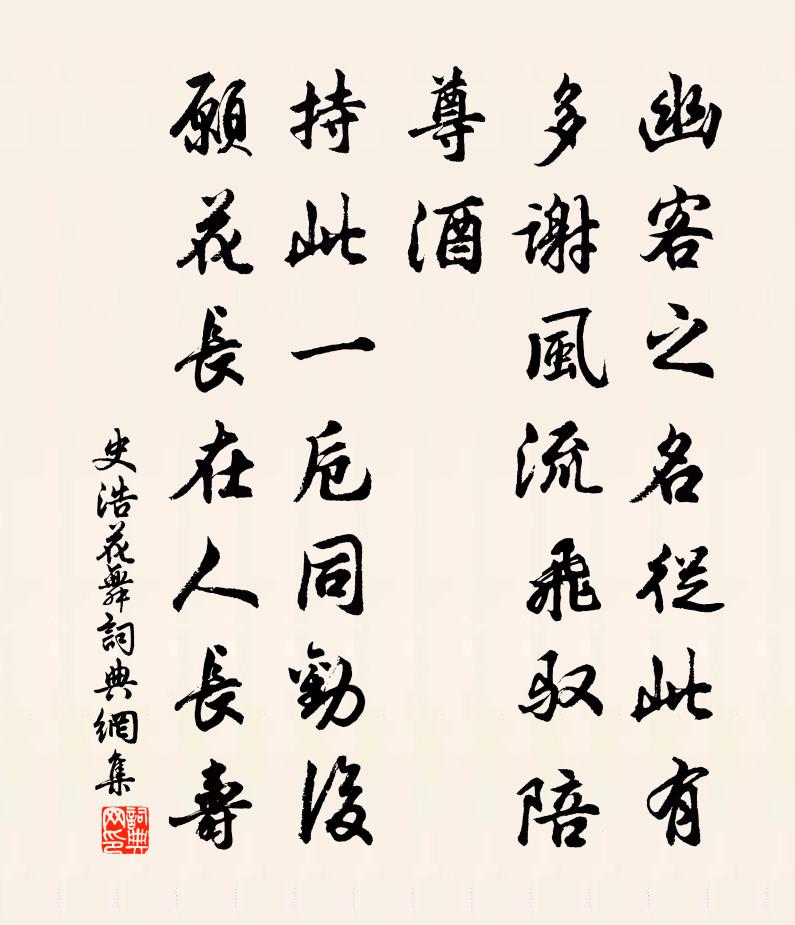 幽客之名從此有
多謝風流飛馭陪
尊酒
持此一卮同勸後
願花長在人長壽
史浩花舞詞典網集
詞典网印